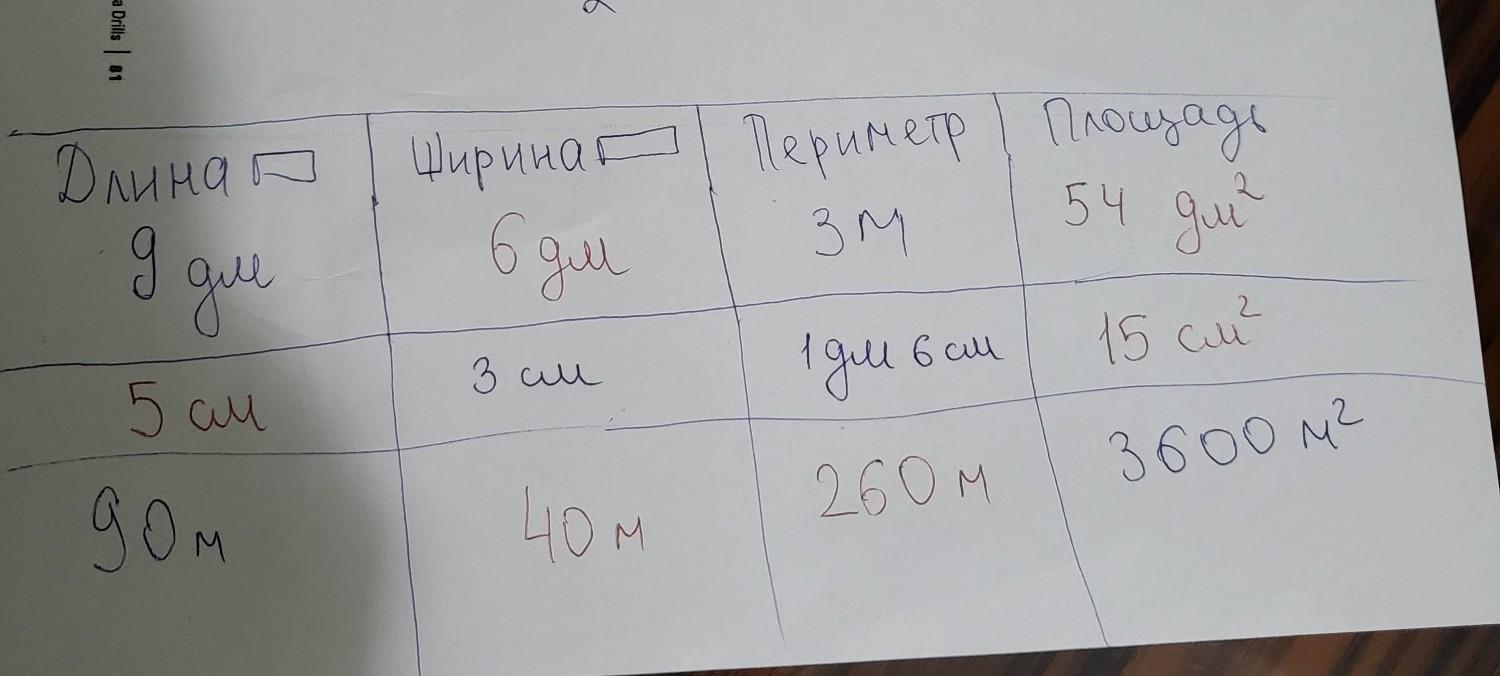 a Drills | 81
Длина Ширина Периметр Площадь
9 дм 6 дм 3 м 54 дм²
5 см 3 см 1 дм 6 см 15 см²
90 м 40 м 260 м 3600 м²